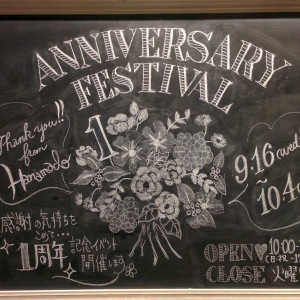 ANNIVERSARY
FESTIVAL
Thank you!!
from
Hanamado
1
9.16(wed)
10.4
感謝の気持ちを
こめて…
1周年
記念イベント
開催します
OPEN♥10:00-
CLOSE 火曜